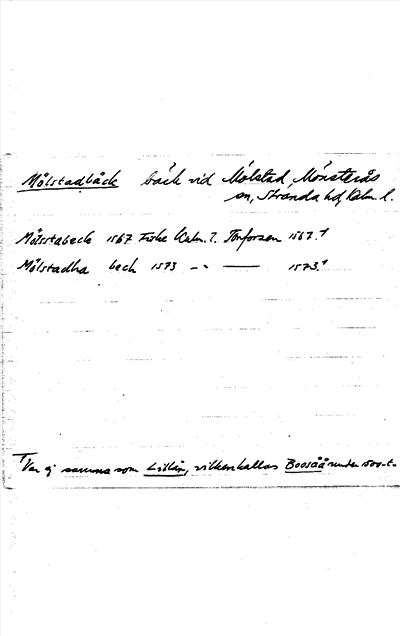 Mölstadbäck bäck vid Mölstad, Mönsterås
sn, Stranda hd, Kalm. l.
Mölstabeck 1567 Fiske Kalm. l. Torforsen 1567.¹
Mölstadha beck 1573 -"- — 1573.¹
¹ Var ej samma som Lillån, vilken kallas Boosåå under 1500-t.